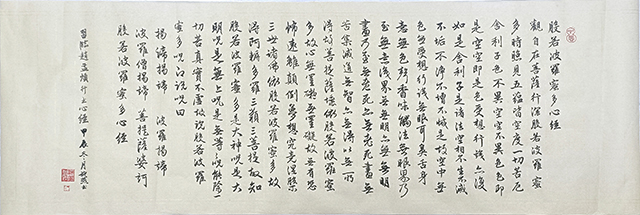 般若波羅蜜多心經
觀自在菩薩行深般若波羅蜜
多時照見五蘊皆空度一切苦厄
舍利子色不異空空不異色色即
是空空即是色受想行識亦復
如是舍利子是諸法空相不生不滅
不垢不淨不增不減是故空中無
色無受想行識無眼耳鼻舌身
意無色聲香味觸法無眼界乃
至無意識界無無明亦無無明
盡乃至無老死亦無老死盡無
苦集滅道無智亦無得以無所
得故菩提薩埵依般若波羅蜜
多故心無罣礙無罣礙故無有恐
怖遠離顛倒夢想究竟涅槃
三世諸佛依般若波羅蜜多故
得阿耨多羅三藐三菩提故知
般若波羅蜜多是大神呪是大
明呪是無上呪是無等等呪能除一
切苦真實不虛故說般若波羅
蜜多呪即說呪曰
揭諦揭諦 波羅揭諦
波羅僧揭諦 菩提薩婆訶
般若波羅蜜多心經
習臨趙孟頫行書心經 甲辰冬月